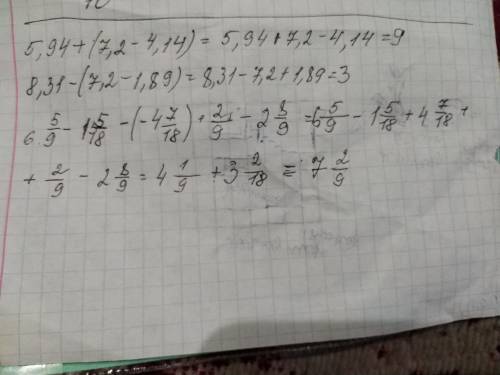 10
5,94+(7,2-4,14)= 5,94+7,2-4,14=9
8,31-(7,2-1,89)=8,31-7,2+1,89=3
6 5/9 - 1 5/18 - (-4 7/18) + 2/9 - 2 8/9 = 6 5/9 - 1 5/18 + 4 7/18 +
+ 2/9 - 2 8/9 = 4 1/9 + 3 2/18 = 7 2/9